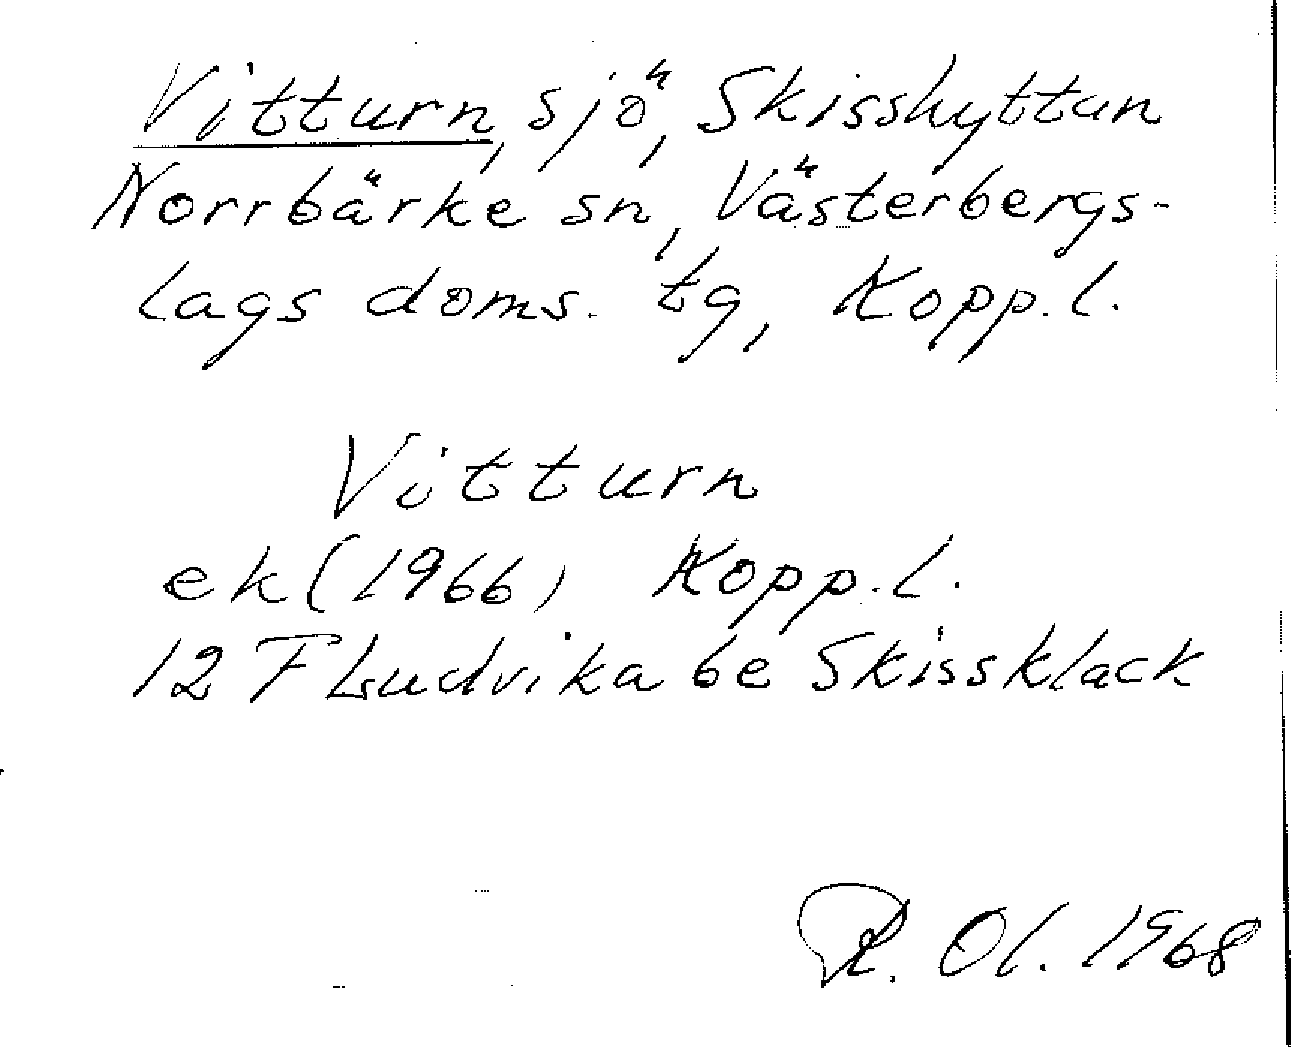 Vitturn, sjö, Skisshyttan
Norrbärke sn, Västerbergs-
lags doms. tg, Kopp. l.
Vitturn
ek (1966) Kopp. l.
12 F Ludvika 6e Skissklack
R. Ol. 1968